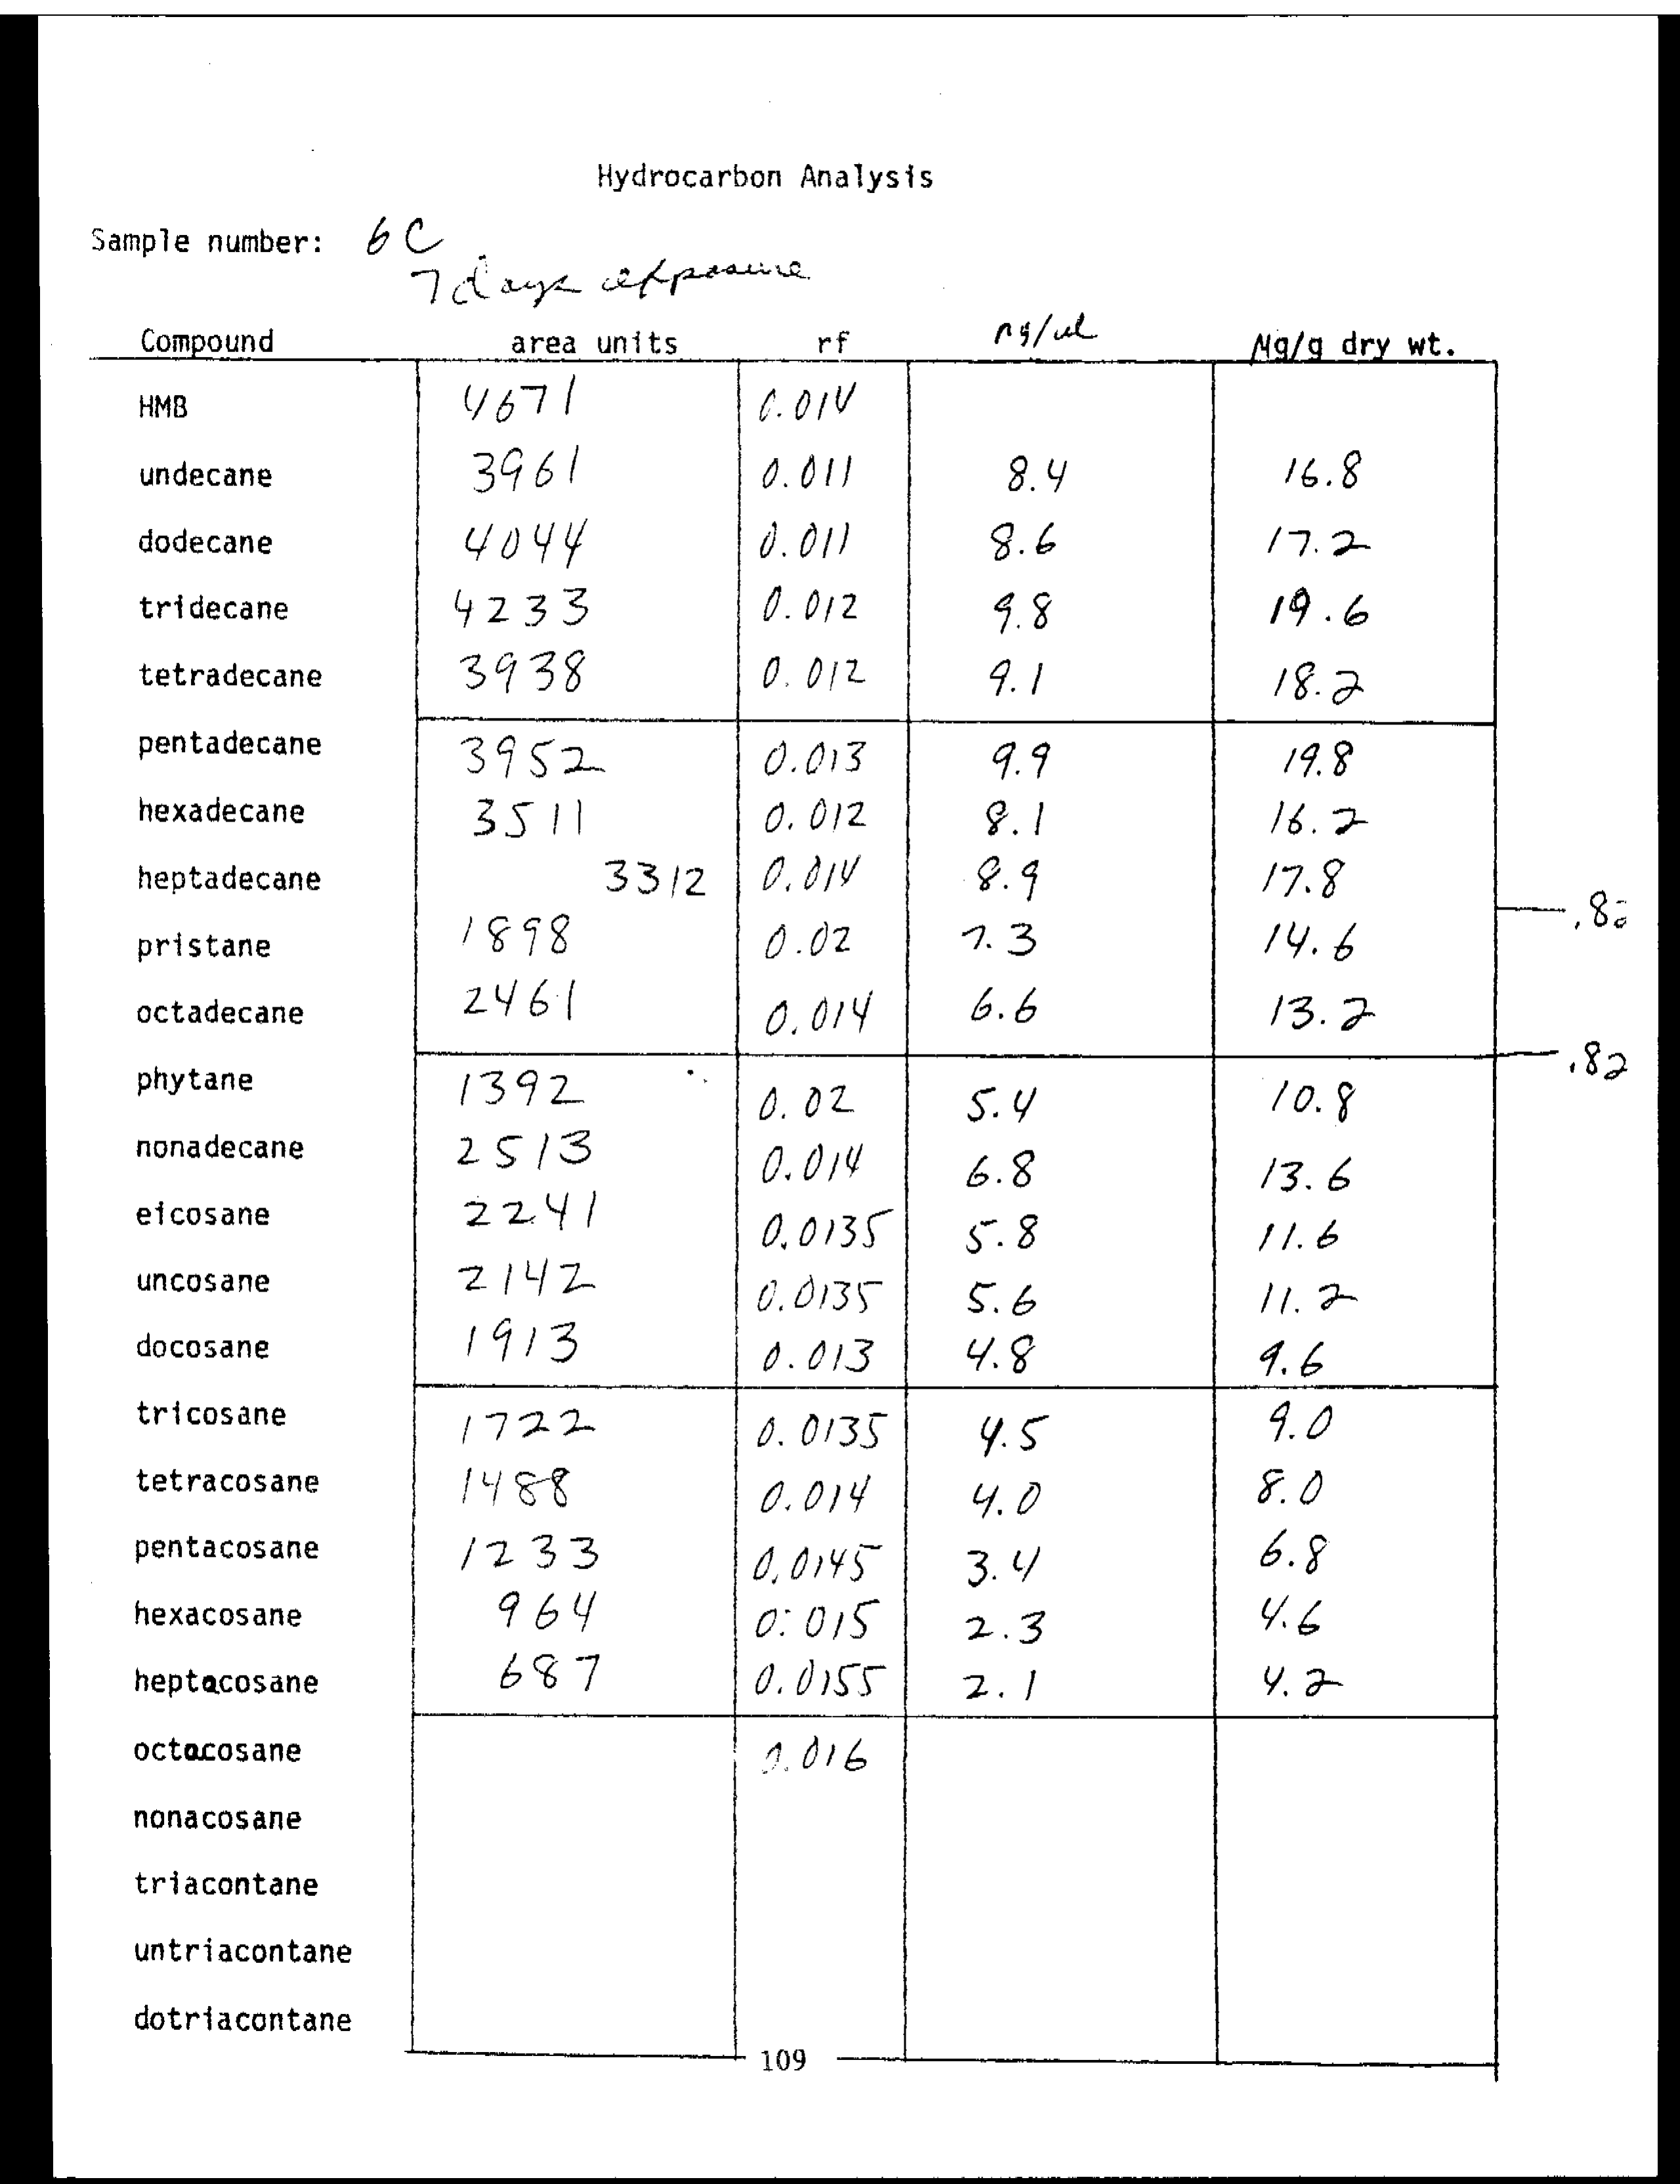 Hydrocarbon Analysis
Sample number: 6C
7 days exposure
Compound area units rf ng/ul Mg/g dry wt.
HMB 4671 0.014
undecane 3961 0.011 8.4 16.8
dodecane 4044 0.011 8.6 17.2
tridecane 4233 0.012 9.8 19.6
tetradecane 3938 0.012 9.1 18.2
pentadecane 3952 0.013 9.9 19.8
hexadecane 3511 0.012 8.1 16.2
heptadecane 3312 0.014 8.9 17.8
pristane 1898 0.02 7.3 14.6
octadecane 2461 0.014 6.6 13.2
.82
phytane 1392 0.02 5.4 10.8
nonadecane 2513 0.014 6.8 13.6
eicosane 2241 0.0135 5.8 11.6
uncosane 2142 0.0135 5.6 11.2
docosane 1913 0.013 4.8 9.6
tricosane 1722 0.0135 4.5 9.0
tetracosane 1488 0.014 4.0 8.0
pentacosane 1233 0.0145 3.4 6.8
hexacosane 964 0.015 2.3 4.6
heptacosane 687 0.0155 2.1 4.2
octacosane 0.016
nonacosane
triacontane
untriacontane
dotriacontane
109